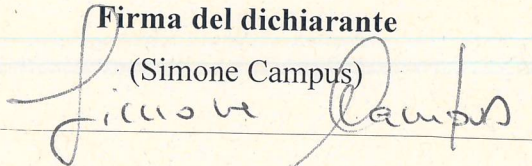 Firma del dichiarante
(Simone Campus)
Simone Campus